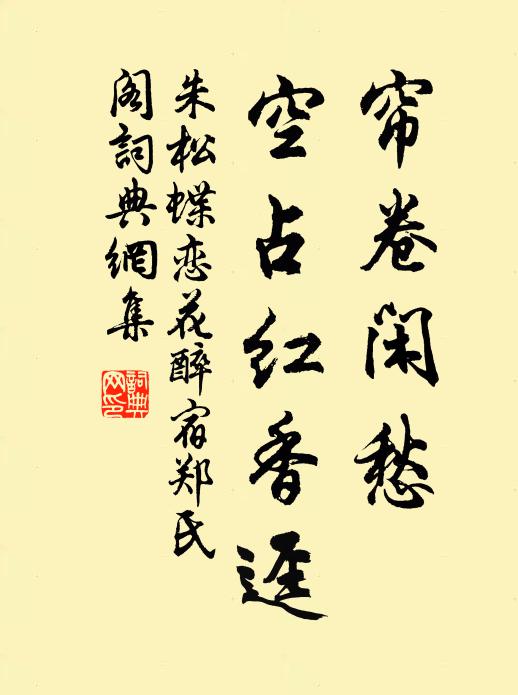 帘卷闲愁
空占红香逕
朱松蝶恋花醉宿郑氏
阁詞典網集
詞典
网印